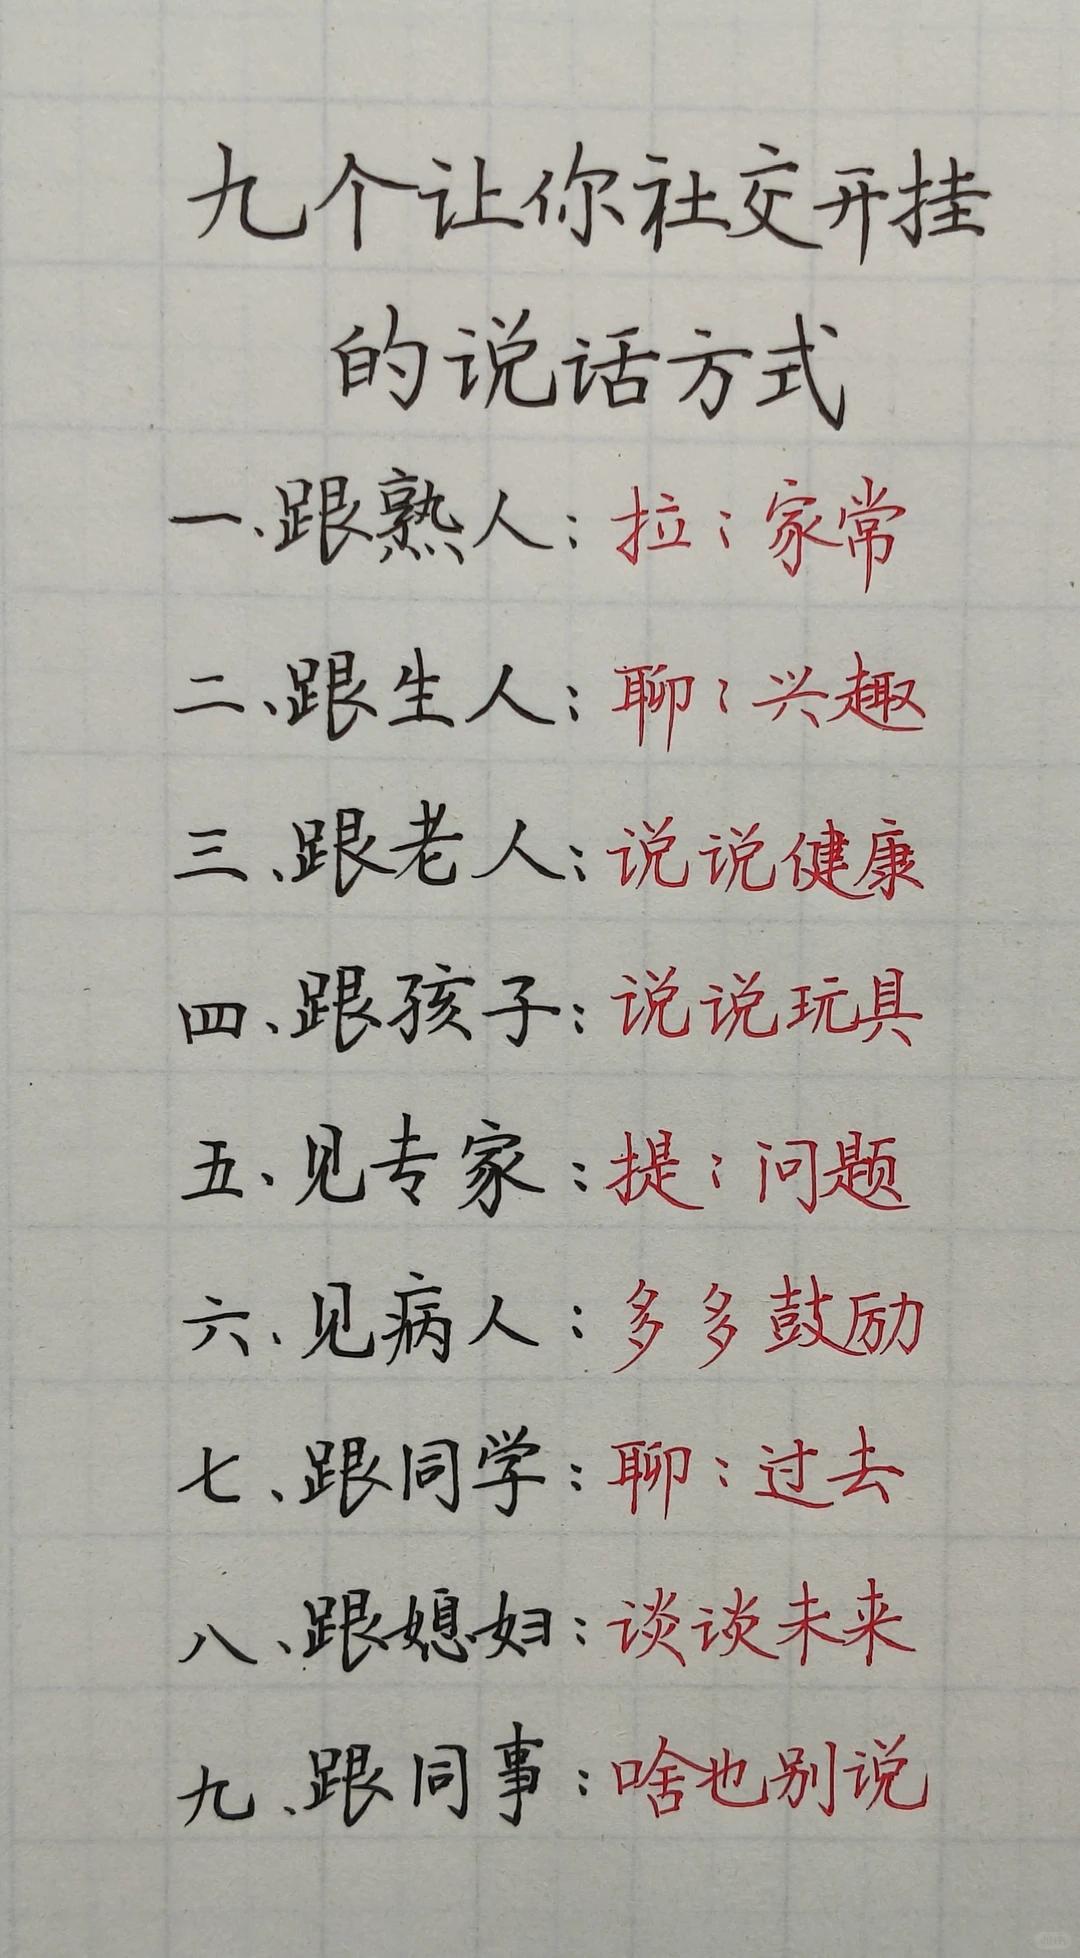 九个让你社交开挂
的说话方式
一、跟熟人：拉：家常
二、跟生人：聊：兴趣
三、跟老人：说说健康
四、跟孩子：说说玩具
五、见专家：提：问题
六、见病人：多多鼓励
七、跟同学：聊：过去
八、跟媳妇：谈谈未来
九、跟同事：啥也别说